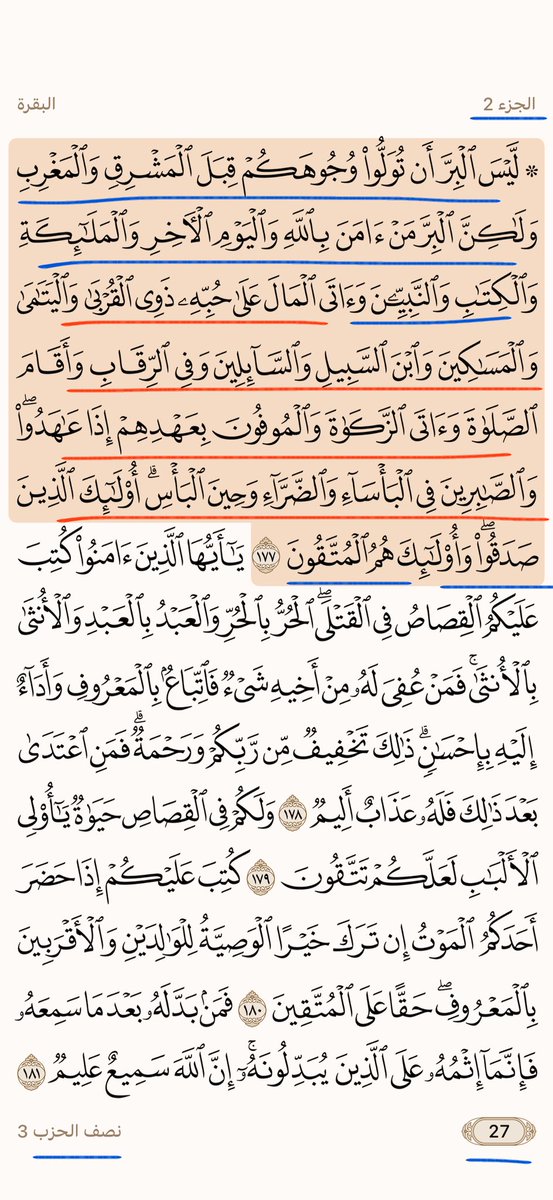 الجزء 2
البقرة
۞ لَّيْسَ الْبِرَّ أَن تُوَلُّوا۟ وُجُوهَكُمْ قِبَلَ الْمَشْرِقِ وَالْمَغْرِبِ
وَلَـٰكِنَّ الْبِرَّ مَنْ ءَامَنَ بِاللَّهِ وَالْيَوْمِ الْـَٔاخِرِ وَالْمَلَـٰٓئِكَةِ
وَالْكِتَـٰبِ وَالنَّبِيِّـۧنَ وَءَاتَى الْمَالَ عَلَىٰ حُبِّهِۦ ذَوِى الْقُرْبَىٰ وَالْيَتَـٰمَىٰ
وَالْمَسَـٰكِينَ وَابْنَ السَّبِيلِ وَالسَّآئِلِينَ وَفِى الرِّقَابِ وَأَقَامَ
الصَّلَوٰةَ وَءَاتَى الزَّكَوٰةَ وَالْمُوفُونَ بِعَهْدِهِمْ إِذَا عَـٰهَدُوا۟ۖ
وَالصَّـٰبِرِينَ فِى الْبَأْسَآءِ وَالضَّرَّآءِ وَحِينَ الْبَأْسِۗ أُو۟لَـٰٓئِكَ الَّذِينَ
صَدَقُوا۟ۖ وَأُو۟لَـٰٓئِكَ هُمُ الْمُتَّقُونَ ١٧٧ يَـٰٓأَيُّهَا الَّذِينَ ءَامَنُوا۟ كُتِبَ
عَلَيْكُمُ الْقِصَاصُ فِى الْقَتْلَىۖ الْحُرُّ بِالْحُرِّ وَالْعَبْدُ بِالْعَبْدِ وَالْأُنثَىٰ
بِالْأُنثَىٰۚ فَمَنْ عُفِىَ لَهُۥ مِنْ أَخِيهِ شَىْءٌ فَاتِّبَاعٌۢ بِالْمَعْرُوفِ وَأَدَآءٌ
إِلَيْهِ بِإِحْسَـٰنٍۗ ذَٰلِكَ تَخْفِيفٌ مِّن رَّبِّكُمْ وَرَحْمَةٌۗ فَمَنِ اعْتَدَىٰ
بَعْدَ ذَٰلِكَ فَلَهُۥ عَذَابٌ أَلِيمٌ ١٧٨ وَلَكُمْ فِى الْقِصَاصِ حَيَوٰةٌ يَـٰٓأُو۟لِى
الْأَلْبَـٰبِ لَعَلَّكُمْ تَتَّقُونَ ١٧٩ كُتِبَ عَلَيْكُمْ إِذَا حَضَرَ
أَحَدَكُمُ الْمَوْتُ إِن تَرَكَ خَيْرًا الْوَصِيَّةُ لِلْوَٰلِدَيْنِ وَالْأَقْرَبِينَ
بِالْمَعْرُوفِۖ حَقًّا عَلَى الْمُتَّقِينَ ١٨٠ فَمَنۢ بَدَّلَهُۥ بَعْدَ مَا سَمِعَهُۥ
فَإِنَّمَآ إِثْمُهُۥ عَلَى الَّذِينَ يُبَدِّلُونَهُۥٓۚ إِنَّ اللَّهَ سَمِيعٌ عَلِيمٌ ١٨١
27
نصف الحزب 3